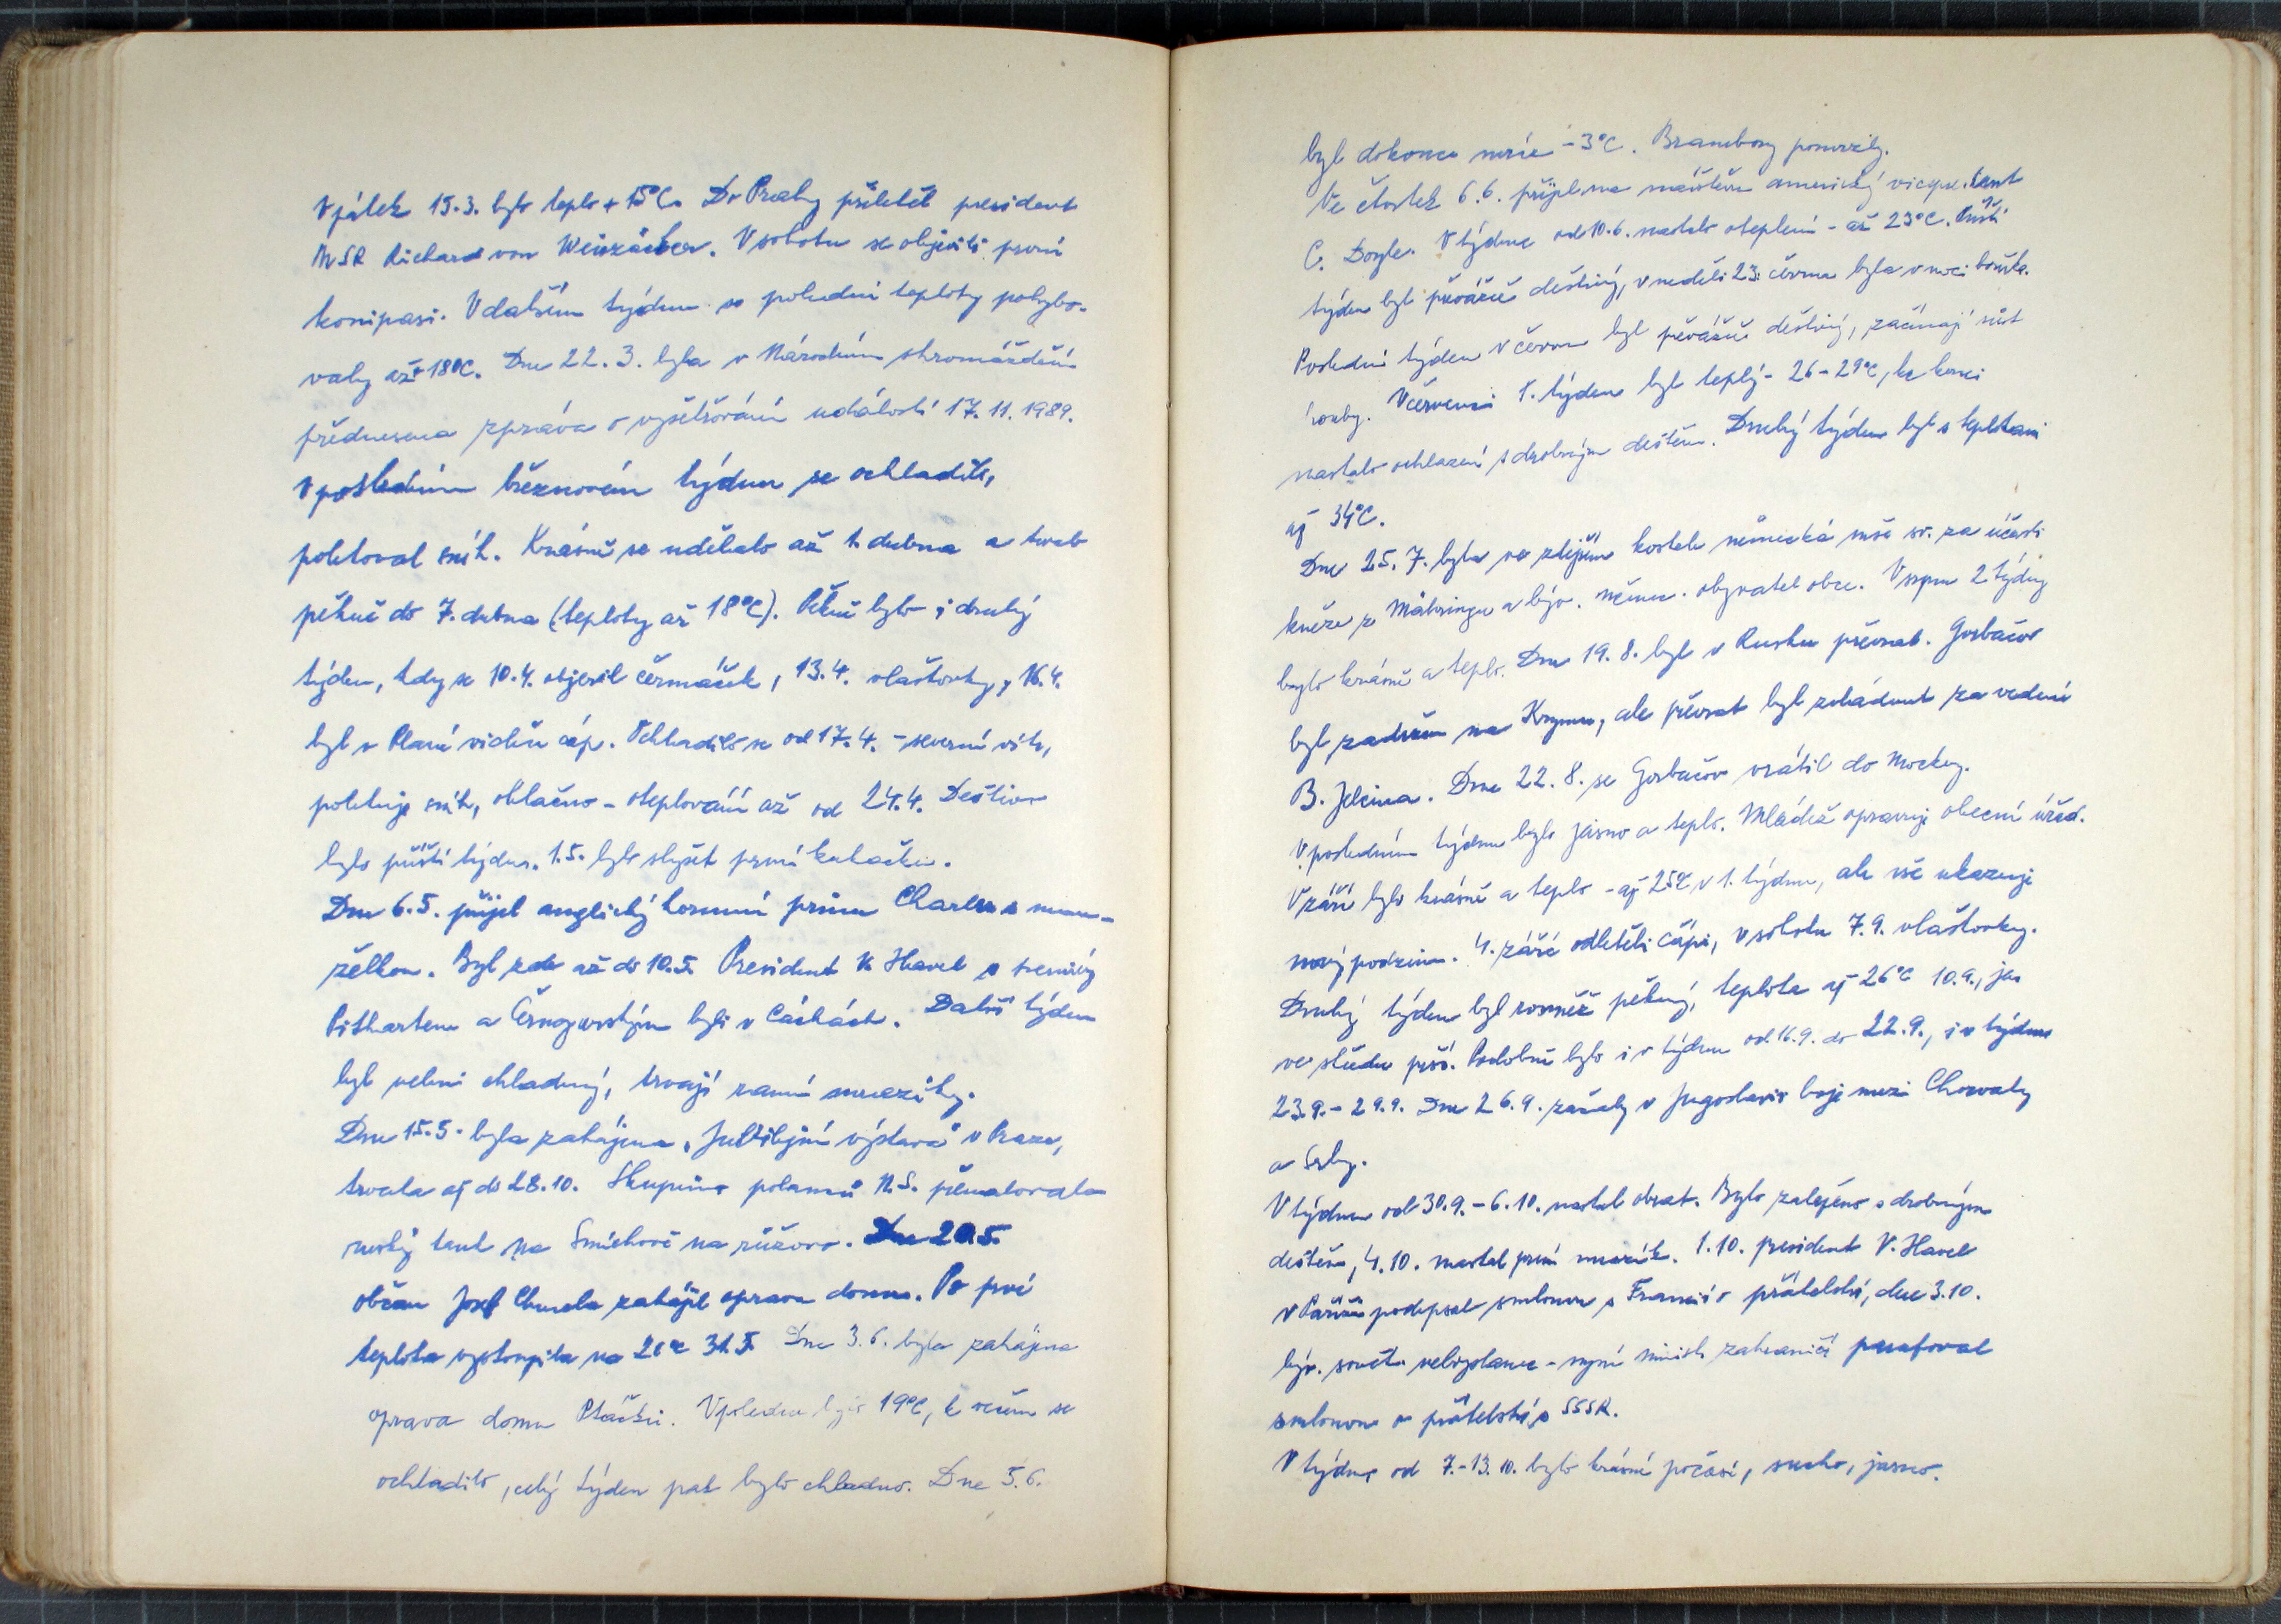 V pátek 15.3. bylo teplo + 15°C. Do Prahy přiletěl president
NSR Richard von Weizäcker. V sobotu se objevili první
konipasi. V dalším týdnu se polední teploty pohybo-
valy až 18°C. Dne 22.3. byla v Národním shromáždění
přednesena zpráva o vyšetřování událostí 17.11.1989.
V posledním březnovém týdnu se ochladilo,
poletoval sníh. Krásně se udělalo až 1. dubna a trvalo
pěkně do 7. dubna (teploty až 18°C). Pěkně bylo i druhý
týden, kdy se 10.4. objevil čermáček, 13.4. vlaštovky, 16.4.
byl v Plané viděn čáp. Ochladilo se od 17.4. - severní vítr,
poletuje sníh, oblačno - oteplování až od 24.4. Deštivo
bylo příští týden. 1.5. bylo slyšet první kukačku.
Dne 6.5. přijel anglický korunní princ Charles s man-
želkou. Byl zde až do 10.5. President V. Havel s premiéry
Pithartem a Čarnogurským byli v Cáchách. Další týden
byl velmi chladný, trvají ranní mrazíky.
Dne 15.5. byla zahájena "Jubilejní výstava" v Praze,
trvala až do 28.10. Skupina poslanců N.S. přemalovala
ruský tank na Smíchově na růžovo. Dne 20.5.
občan Josef zahájil opravu domu. Po prvé
teplota vystoupila na 31.5. Dne 3.6. byla zahájena
oprava domu Ptáčků. V poledne bylo 19°C, k večeru se
ochladilo, celý týden pak bylo chladno. Dne 5.6.
byl dokonce mráz -3°C. Brambory pomrzly.
Ve čtvrtek 6.6. přijel na návštěvu americký vicepresident
C. Doyle. V týdnu od 10.6. nastalo oteplení - až 23°C. Příští
týden byl převážně deštivý, v neděli 23. června byla v noci bouřka.
Poslední týden v červnu byl převážně deštivý, začínají růst
houby. V červenci 1. týden byl teplý - 26-29°C, ke konci
nastalo ochlazení s drobným deštěm. Druhý týden byl s teplotami
až 34°C.
Dne 25.7. byla ve zdejším kostele německá mše sv. za účasti
kněze z Mähringu a býv. němec. obyvatel obce. V srpnu 2 týdny
bylo krásně a teplo. Dne 19.8. byl v Rusku převrat. Gorbačov
byl zadržen na Krymu, ale převrat byl zvládnut za vedení
B. Jelcina. Dne 22.8. se Gorbačov vrátil do Moskvy.
V posledním týdnu bylo jasno a teplo. Mládež opravuje obecní úřad.
V září bylo krásně a teplo - až 25°C v 1. týdnu, ale vše ukazuje
nový podzim. 4. září odletěli čápi, v sobotu 7.9. vlaštovky.
Druhý týden byl rovněž pěkný, teplota až 26°C 10.9., jen
ve středu prší. Podobně bylo i v týdnu od 16.9. do 22.9., i v týdnu
23.9. - 29.9. Dne 26.9. začaly v Jugoslavii boje mezi Chorvaty
a Srby.
V týdnu od 30.9. - 6.10. nastal obrat. Bylo zataženo s drobným
deštěm, 4.10. nastal první mrazík. 1.10. president V. Havel
v Paříži podepsal smlouvu s Francií o přátelství, dne 3.10.
býv. sovět. velvyslanec - nyní ministr zahraničí parafoval
smlouvu o přátelství s SSSR.
V týdnu od 7.-13.10. bylo krásné počasí, sucho, jasno.